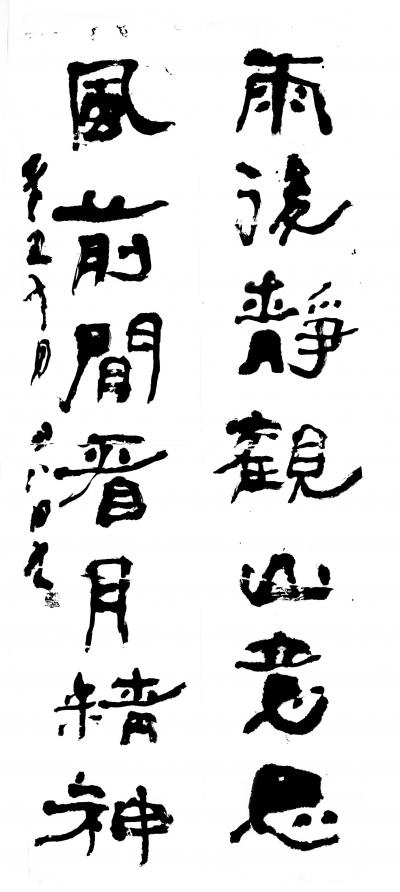 雨後靜觀山意思
風前閒看月精神
辛丑